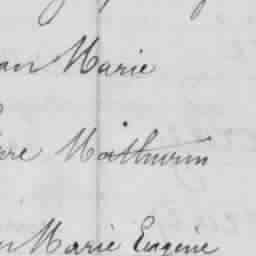 an Marie
re Mathurin
Marie Eugène